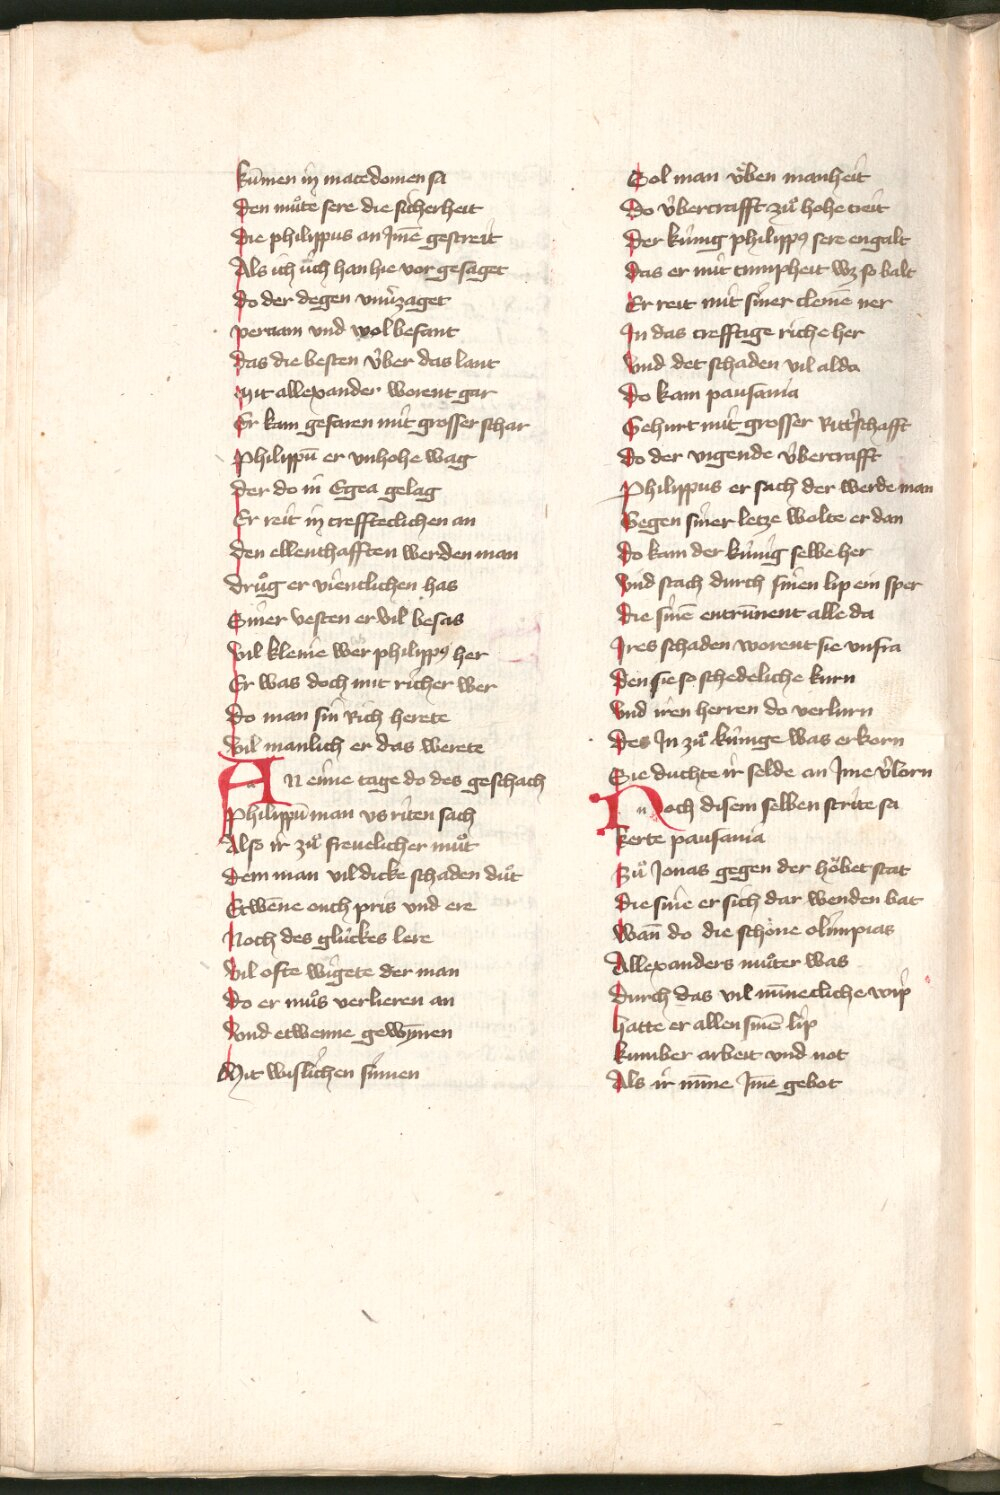 kūmen in macedonien sa
Den můte sere die sicherheit
Die philippus an Jme gestreit
Als ich üch han hie vor gesaget
Do der degen vnuerzaget
vernam vnd wol befant
Das die besten über das lant
Mit allexander worent gar
Er kam gefaren mit grosser schar
Philippū er vnhohe wag
Der do in Egea gelag
Er reit in creffteclichen an
Den ellenthafften werden man
Drůg er vientlichen has
Siner vesten er vil besas
Vil kleine wer philippus her
Er was doch mit richer wer
Do man sin Rich herete
Vil manlich er das werete
AN eime tage do des geschach
Philippū man vs riten sach
Also ir zů freuelicher můt
Dem man vil dicke schaden důt
Etwēne ouch pris vnd ere
Noch des glückes lere
Vil ofte wigete der man
Do er můs verlieren an
Vnd etwenne gewȳnen
Mit wislichen sinnen
Sol man üben manheit
Do übercrafft zů hohe treit
Der künig philippus sere engalt
Das er mit tumpheit wz so balt
Er reit mit siner cleinē wer
In das crefftige riche her
Vnd det schaden vil alda
Do kam pausania
Gehurt mit grosser Ritterschafft
Do der vigende übercrafft
Philippus er sach der werde man
Gegen siner letze wolte er dan
Do kam der künig selbe her
Vnd stach durch sinen lip ein sper
Die sinē entrūnent alle da
Ires schaden worent sie vnfra
Den sie so schedeliche kurn
Vnd iren herren do verlurn
Des In zů künige was erkorn
Sie duchte ir selde an Jme verlorn
Noch disem selben strite sa
kerte pausania
Zů Jonas gegen der höbet stat
Die sine er sich dar wenden bat
Wan̄ do die schöne olimpias
Allexanders můter was
Durch das vil mīnecliche wip
Hatte er allen sinē lip
kumber arbeit vnd not
Als ir mīne Jme gebot